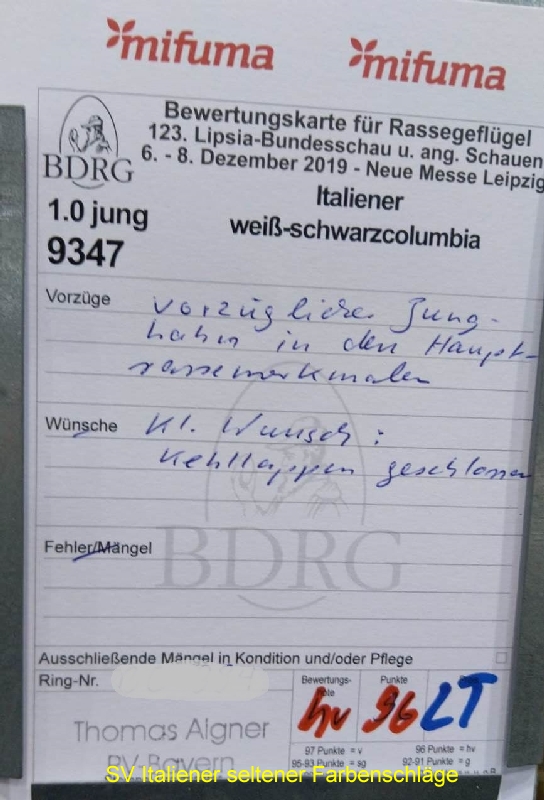 mifuma mifuma
Bewertungskarte für Rassegeflügel
123. Lipsia-Bundesschau u. ang. Schauen
6. - 8. Dezember 2019 - Neue Messe Leipzig
BDRG
Italiener
1.0 jung
weiß-schwarzcolumbia
9347
Vorzüge vorzüglicher Jung-
hahn in den Haupt-
rassemerkmalen
Wünsche Kl. Wunsch:
Kehllappen geschlossen
Fehler/Mängel
BDRG
Ausschließende Mängel in Kondition und/oder Pflege
Ring-Nr.
Bewertungs-
note
Punkte
hv 96 LT
Thomas Aigner
PV Bayern
97 Punkte = v 96 Punkte = hv
95-93 Punkte = sg 92-91 Punkte = g
SV Italiener seltener Farbenschläge